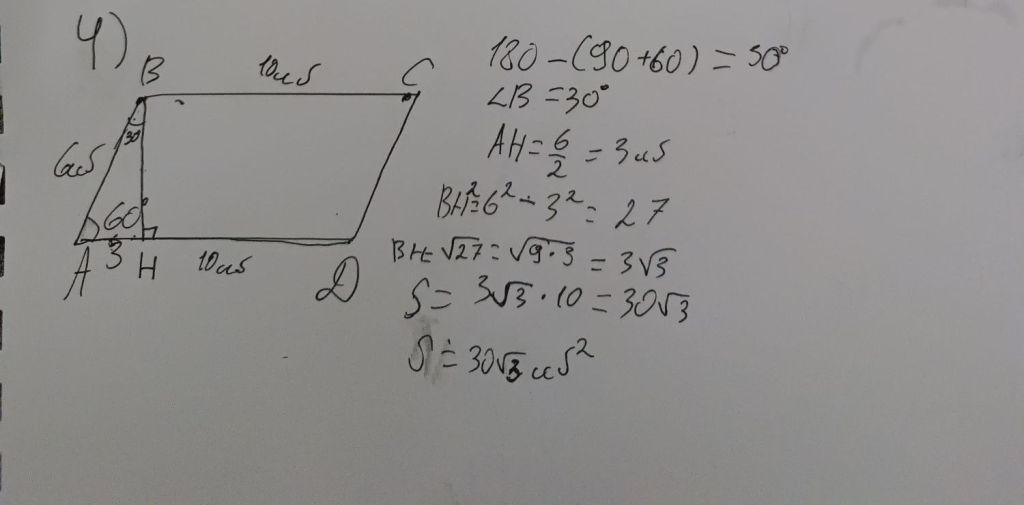 4)
B 10սմ C
6սմ 30
60°
A 3 H 10սմ D
180 - (90 + 60) = 30°
∠B = 30°
AH = 6/2 = 3 սմ
BH² = 6² - 3² = 27
BH = √27 = √9·3 = 3√3
S = 3√3 · 10 = 30√3
S = 30√3 սմ²